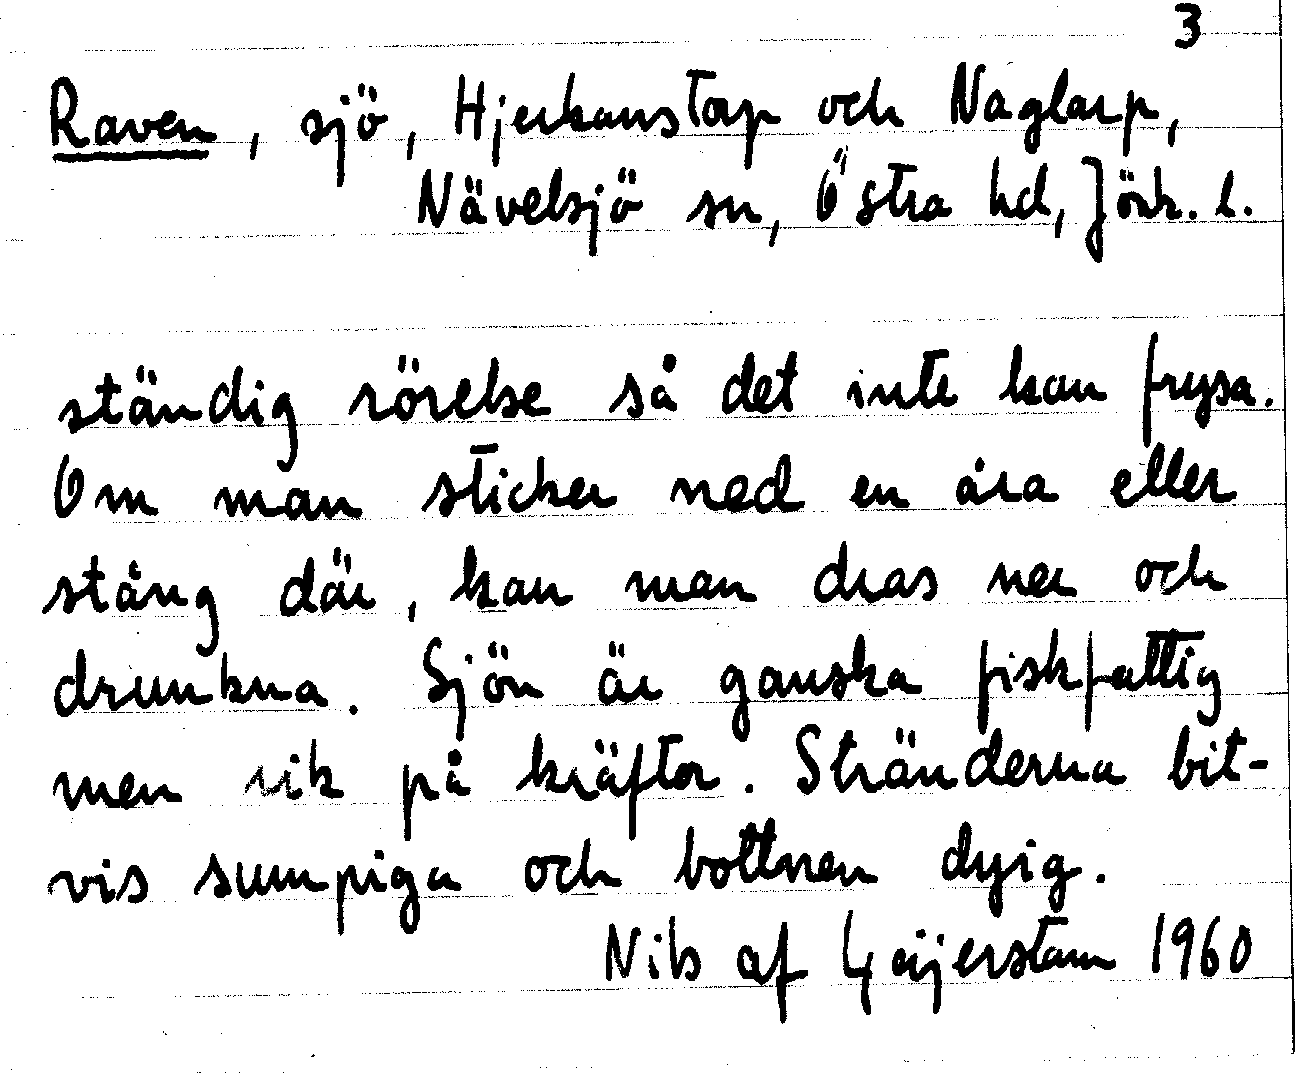 3
Raven, sjö, Hjerkanstorp och Naglarp,
Nävelsjö sn, Östra hd, Jönk. l.
ständig rörelse så det inte kan frysa.
Om man sticker ned en åra eller
stång där, kan man dras ner och
drunkna. Sjön är ganska fiskfattig
men rik på kräftor. Stränderna bit-
vis sumpiga och bottnen dyig.
Nils af Geijerstam 1960